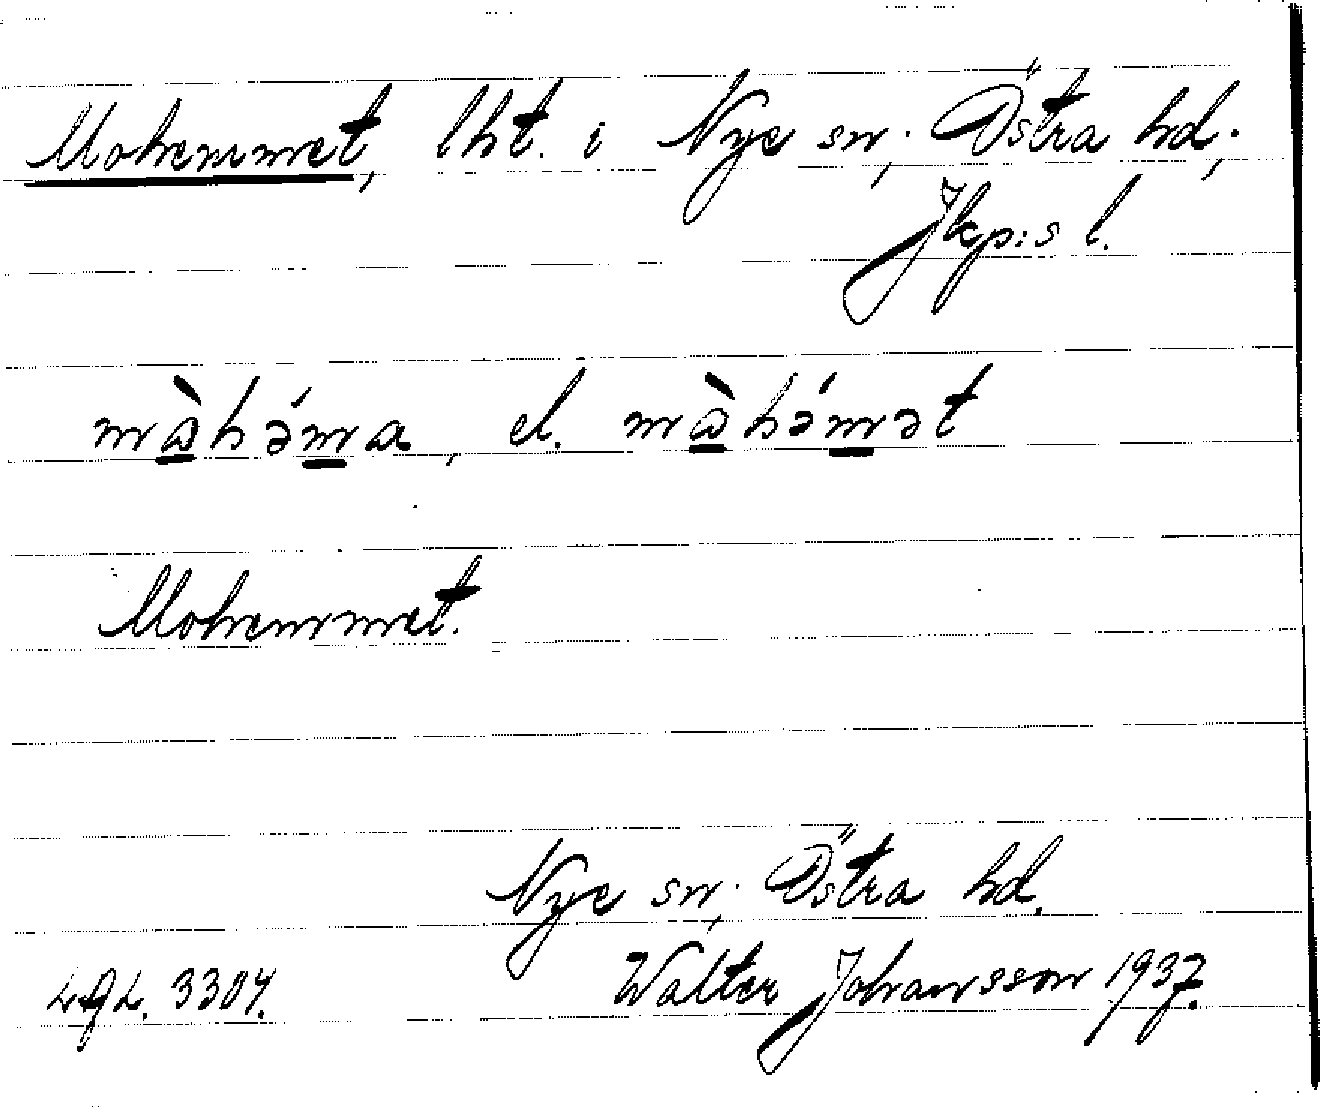 Mohemmet, lht. i Nye sn, Östra hd;
Jkp:s l.
màhə́ma, el. màhə́mət
Mohemmet.
Nye sn, Östra hd.
Walter Johansson 1937.